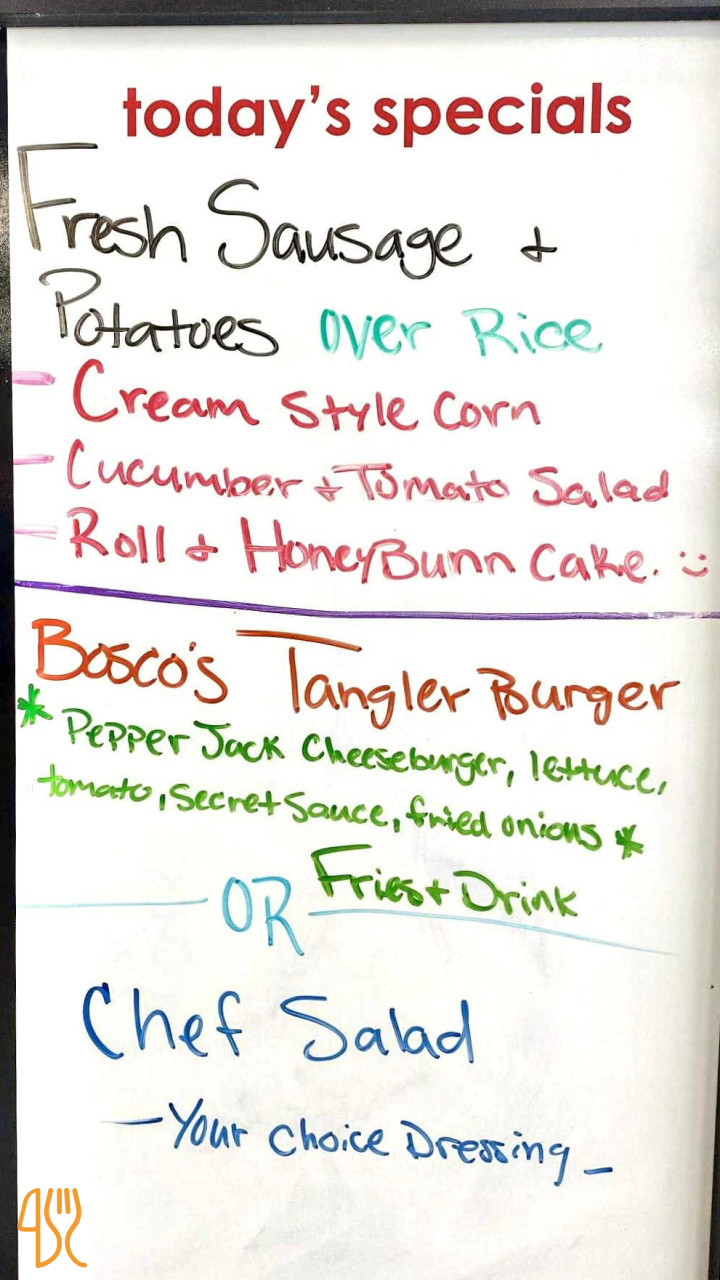 today's specials
Fresh Sausage +
Potatoes over Rice
- Cream Style Corn
- Cucumber + Tomato Salad
- Roll + HoneyBunn Cake. :)
Bosco's Tangler Burger
* Pepper Jack Cheeseburger, lettuce,
tomato, secret sauce, fried onions *
Fries + Drink
OR
Chef Salad
- Your Choice Dressing -